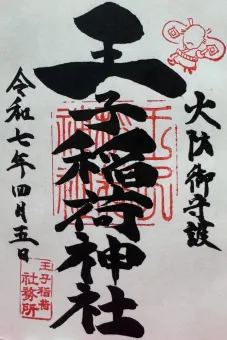 火防御守護
王子稲荷神社
令和七年四月五日
王子稲荷
社務所